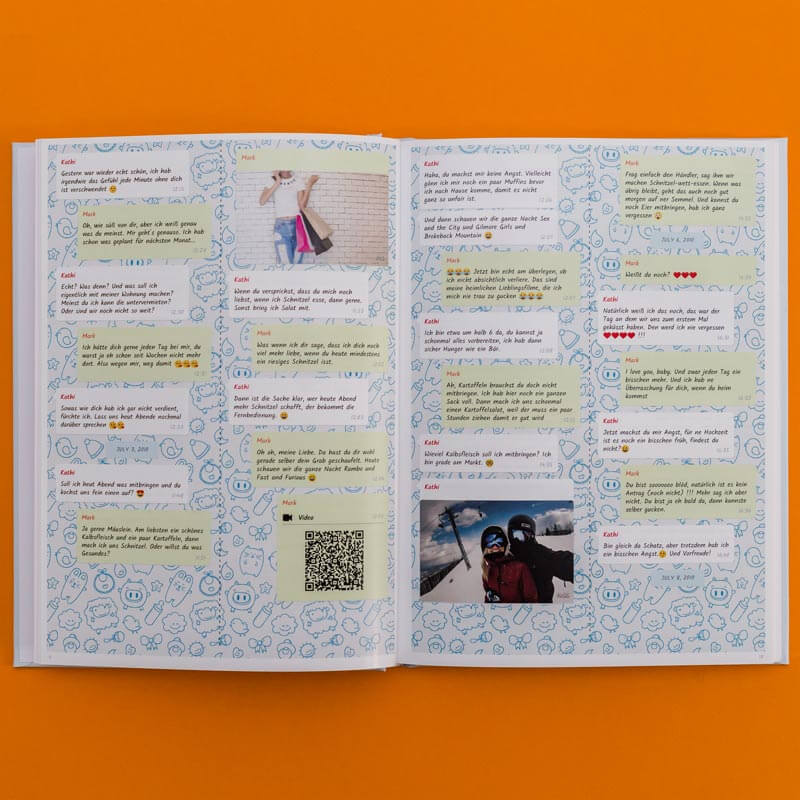 Kathi
Gestern war wieder echt schön, ich hab
irgendwie das Gefühl jede Minute ohne dich
ist verschwendet 😔
Mark
Oh, wie süß von dir, aber ich weiß genau
was du meinst. Mir geht's genauso. Ich hab
schon was geplant für nächsten Monat...
Kathi
Echt? Was denn? Und was soll ich
eigentlich mit meiner Wohnung machen?
Meinst du ich kann die untervermieten?
Oder sind wir noch nicht so weit?
Mark
Ich hätte dich gerne jeden Tag bei mir, du
warst ja eh schon seit Wochen nicht mehr
dort. Also wegen mir, weg damit 😘😘😘
Kathi
Sowas wie dich hab ich gar nicht verdient,
fürchte ich. Lass uns heut Abend nochmal
darüber sprechen 😘😘
JULY 3, 2018
Kathi
Soll ich heut Abend was mitbringen und du
kochst uns fein einen auf? 😍
Mark
Ja gerne Mäuslein. Am liebsten ein schönes
Kalbsfleisch und ein paar Kartoffeln, dann
mach ich uns Schnitzel. Oder willst du was
Gesundes?
Mark
Kathi
Wenn du versprichst, dass du mich noch
liebst, wenn ich Schnitzel esse, dann gerne.
Sonst bring ich Salat mit.
Mark
Was wenn ich dir sage, dass ich dich noch
viel mehr liebe, wenn du heute mindestens
ein riesiges Schnitzel isst.
Kathi
Dann ist die Sache klar, wer heute Abend
mehr Schnitzel schafft, der bekommt die
Fernbedienung. 😄
Mark
Oh oh, meine Liebe. Da hast du dir wohl
gerade selber dein Grab geschaufelt. Heute
schauen wir die ganze Nacht Rambo und
Fast and Furious 😄
Mark
Video
Kathi
Haha, du machst mir keine Angst. Vielleicht
gönn ich mir noch ein paar Muffins bevor
ich nach Hause komme, damit es nicht
ganz so unfair ist.
Und dann schauen wir die ganze Nacht Sex
and the City und Gilmore Girls und
Brokeback Mountain 😄
Mark
😂😂😂 Jetzt bin echt am überlegen, ob
ich nicht absichtlich verliere. Das sind
meine heimlichen Lieblingsfilme, die ich
mich nie trau zu gucken 😂😂😂😂
Kathi
Ich bin etwa um halb 6 da, du kannst ja
schonmal alles vorbereiten, ich hab dann
sicher Hunger wie ein Bär.
Mark
Ah, Kartoffeln brauchst du doch nicht
mitbringen. Ich hab hier noch ein ganzen
Sack voll. Dann mach ich uns schonmal
einen Kartoffelsalat, weil der muss ein paar
Stunden ziehen damit er gut wird
Kathi
Wieviel Kalbsfleisch soll ich mitbringen? Ich
bin grade am Markt.
Kathi
Mark
Frag einfach den Händler, sag ihm wir
machen Schnitzel-wett-essen. Wenn was
übrig bleibt, geht das auch noch gut
morgen auf ner Semmel. Und kannst du
noch Eier mitbringen, hab ich ganz
vergessen
JULY 6, 2018
Mark
Weißt du noch? ❤️❤️❤️
Kathi
Natürlich weiß ich das noch, das war der
Tag an dem wir uns zum ersten Mal
geküsst haben. Den werd ich nie vergessen
❤️❤️❤️❤️ !!!
Mark
I love you, baby. Und zwar jeden Tag ein
bisschen mehr. Und ich hab ne
Überraschung für dich, wenn du heim
kommst
Kathi
Jetzt machst du mir Angst, für ne Hochzeit
ist es noch ein bisschen früh, findest du
nicht?😄
Mark
Du bist sooooooo blöd, natürlich ist es kein
Antrag (noch nicht) !!! Mehr sag ich aber
nicht. Du bist ja eh bald da, dann kannste
selber gucken.
Kathi
Bin gleich da Schatz, aber trotzdem hab ich
ein bisschen Angst.😔 Und Vorfreude!
JULY 8, 2018